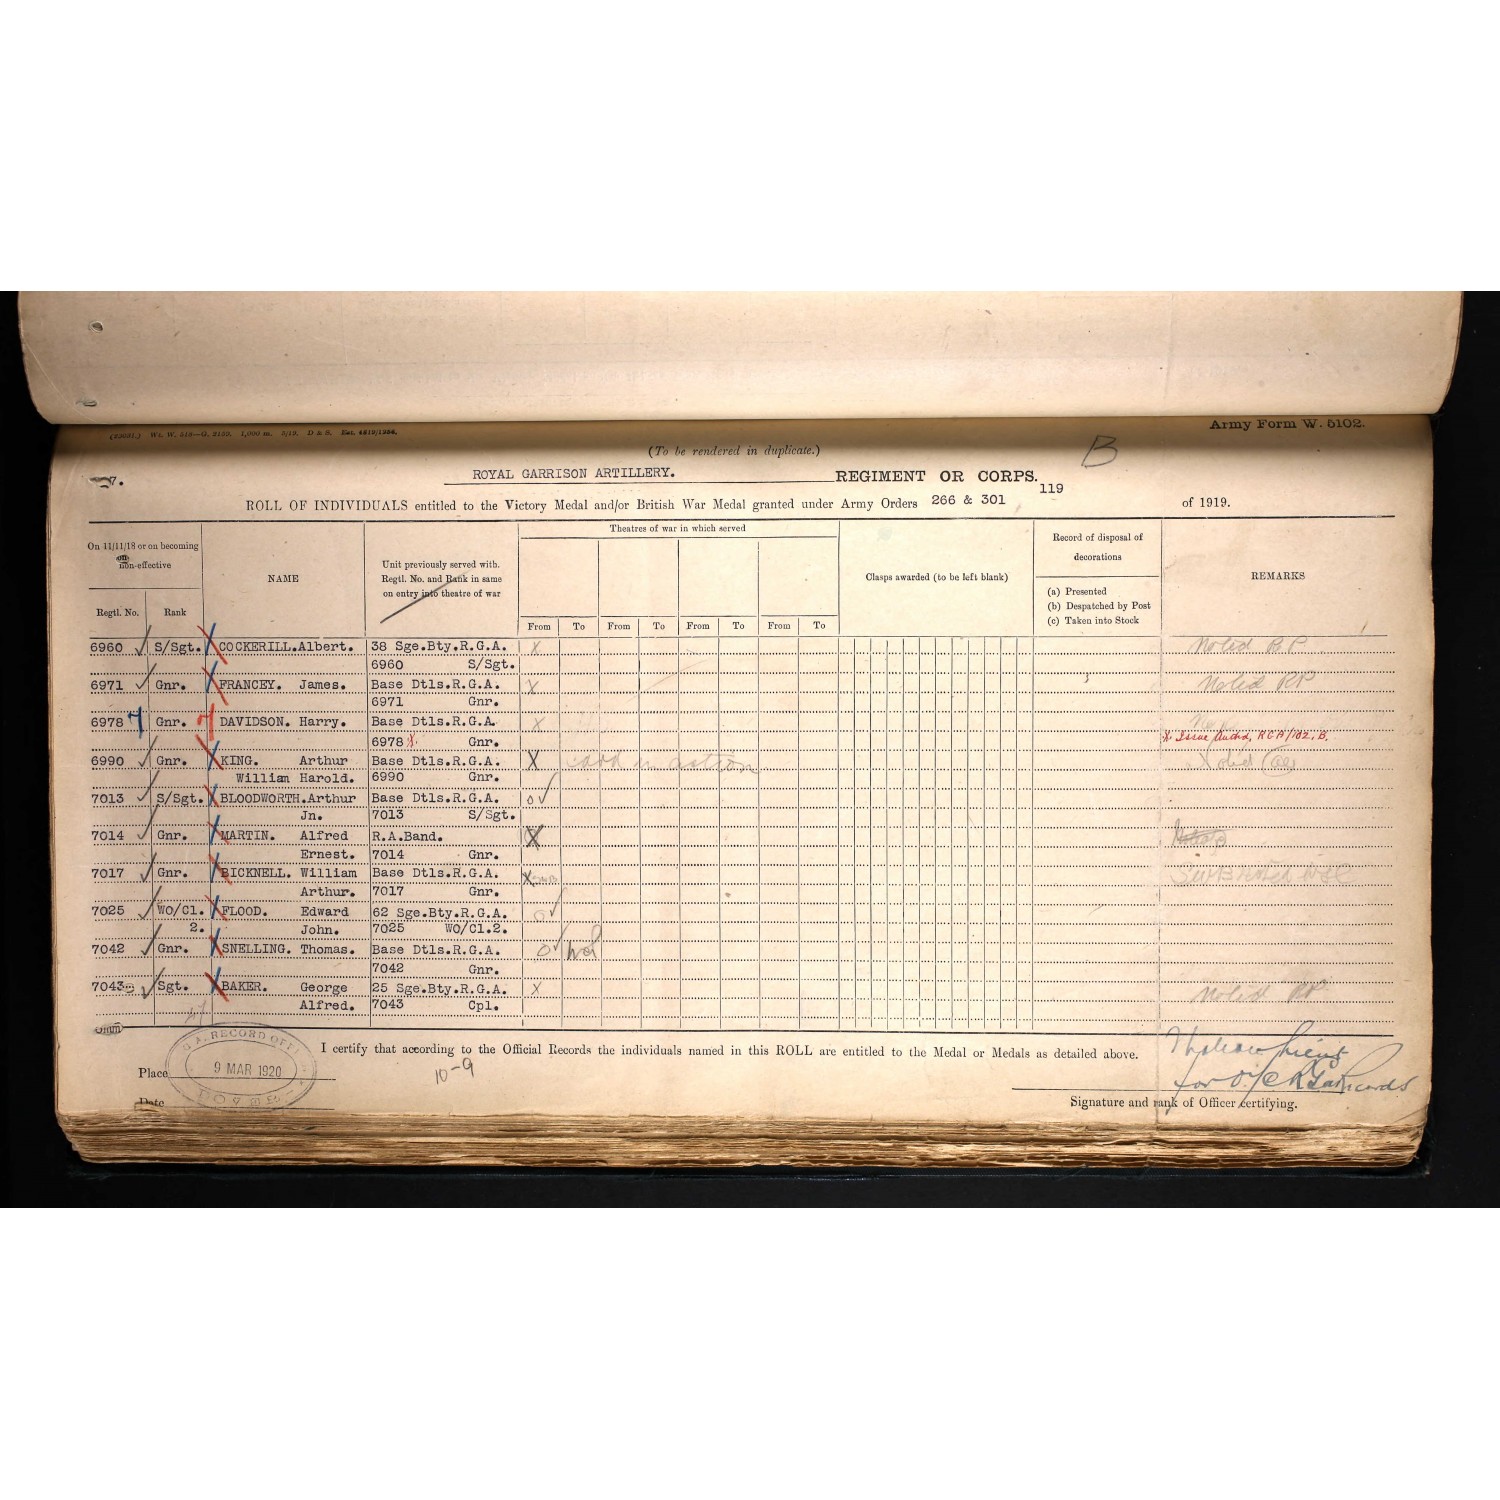 (22031.) Wt. W. 518—G. 2159. 1,000 m. 5/19. D & S. Est. 4819/1256.
Army Form W. 5102.
(To be rendered in duplicate.)
B
7.
ROYAL GARRISON ARTILLERY. REGIMENT OR CORPS.
119
ROLL OF INDIVIDUALS entitled to the Victory Medal and/or British War Medal granted under Army Orders 266 & 301 of 1919.
On 11/11/18 or on becoming
non-effective
Regtl. No. Rank
NAME
Unit previously served with.
Regtl. No. and Rank in same
on entry into theatre of war
Theatres of war in which served
From To From To From To From To
Clasps awarded (to be left blank)
Record of disposal of
decorations
(a) Presented
(b) Despatched by Post
(c) Taken into Stock
REMARKS
6960 S/Sgt. COCKERILL.Albert. 38 Sge.Bty.R.G.A. X Noted RP
6960 S/Sgt.
6971 Gnr. FRANCEY. James. Base Dtls.R.G.A. X Noted RP
6971 Gnr.
6978 Gnr. DAVIDSON. Harry. Base Dtls.R.G.A. X
6978 X Gnr. X Issue Authd, RGA/102, B.
6990 Gnr. KING. Arthur Base Dtls.R.G.A. X card in action
William Harold. 6990 Gnr.
7013 S/Sgt. BLOODWORTH.Arthur Base Dtls.R.G.A. o
Jn. 7013 S/Sgt.
7014 Gnr. MARTIN. Alfred R.A.Band. X
Ernest. 7014 Gnr.
7017 Gnr. BICKNELL. William Base Dtls.R.G.A. X
Arthur. 7017 Gnr.
7025 WO/Cl. FLOOD. Edward 62 Sge.Bty.R.G.A. o
2. John. 7025 WO/Cl.2.
7042 Gnr. SNELLING. Thomas. Base Dtls.R.G.A. o
7042 Gnr.
7043 Sgt. BAKER. George 25 Sge.Bty.R.G.A. X Noted RP
Alfred. 7043 Cpl.
I certify that according to the Official Records the individuals named in this ROLL are entitled to the Medal or Medals as detailed above.
RECORD OFFICE
9 MAR 1920
DOVER
Place
10-9
for O. i/c R.G.A. Records
Date
Signature and rank of Officer certifying.